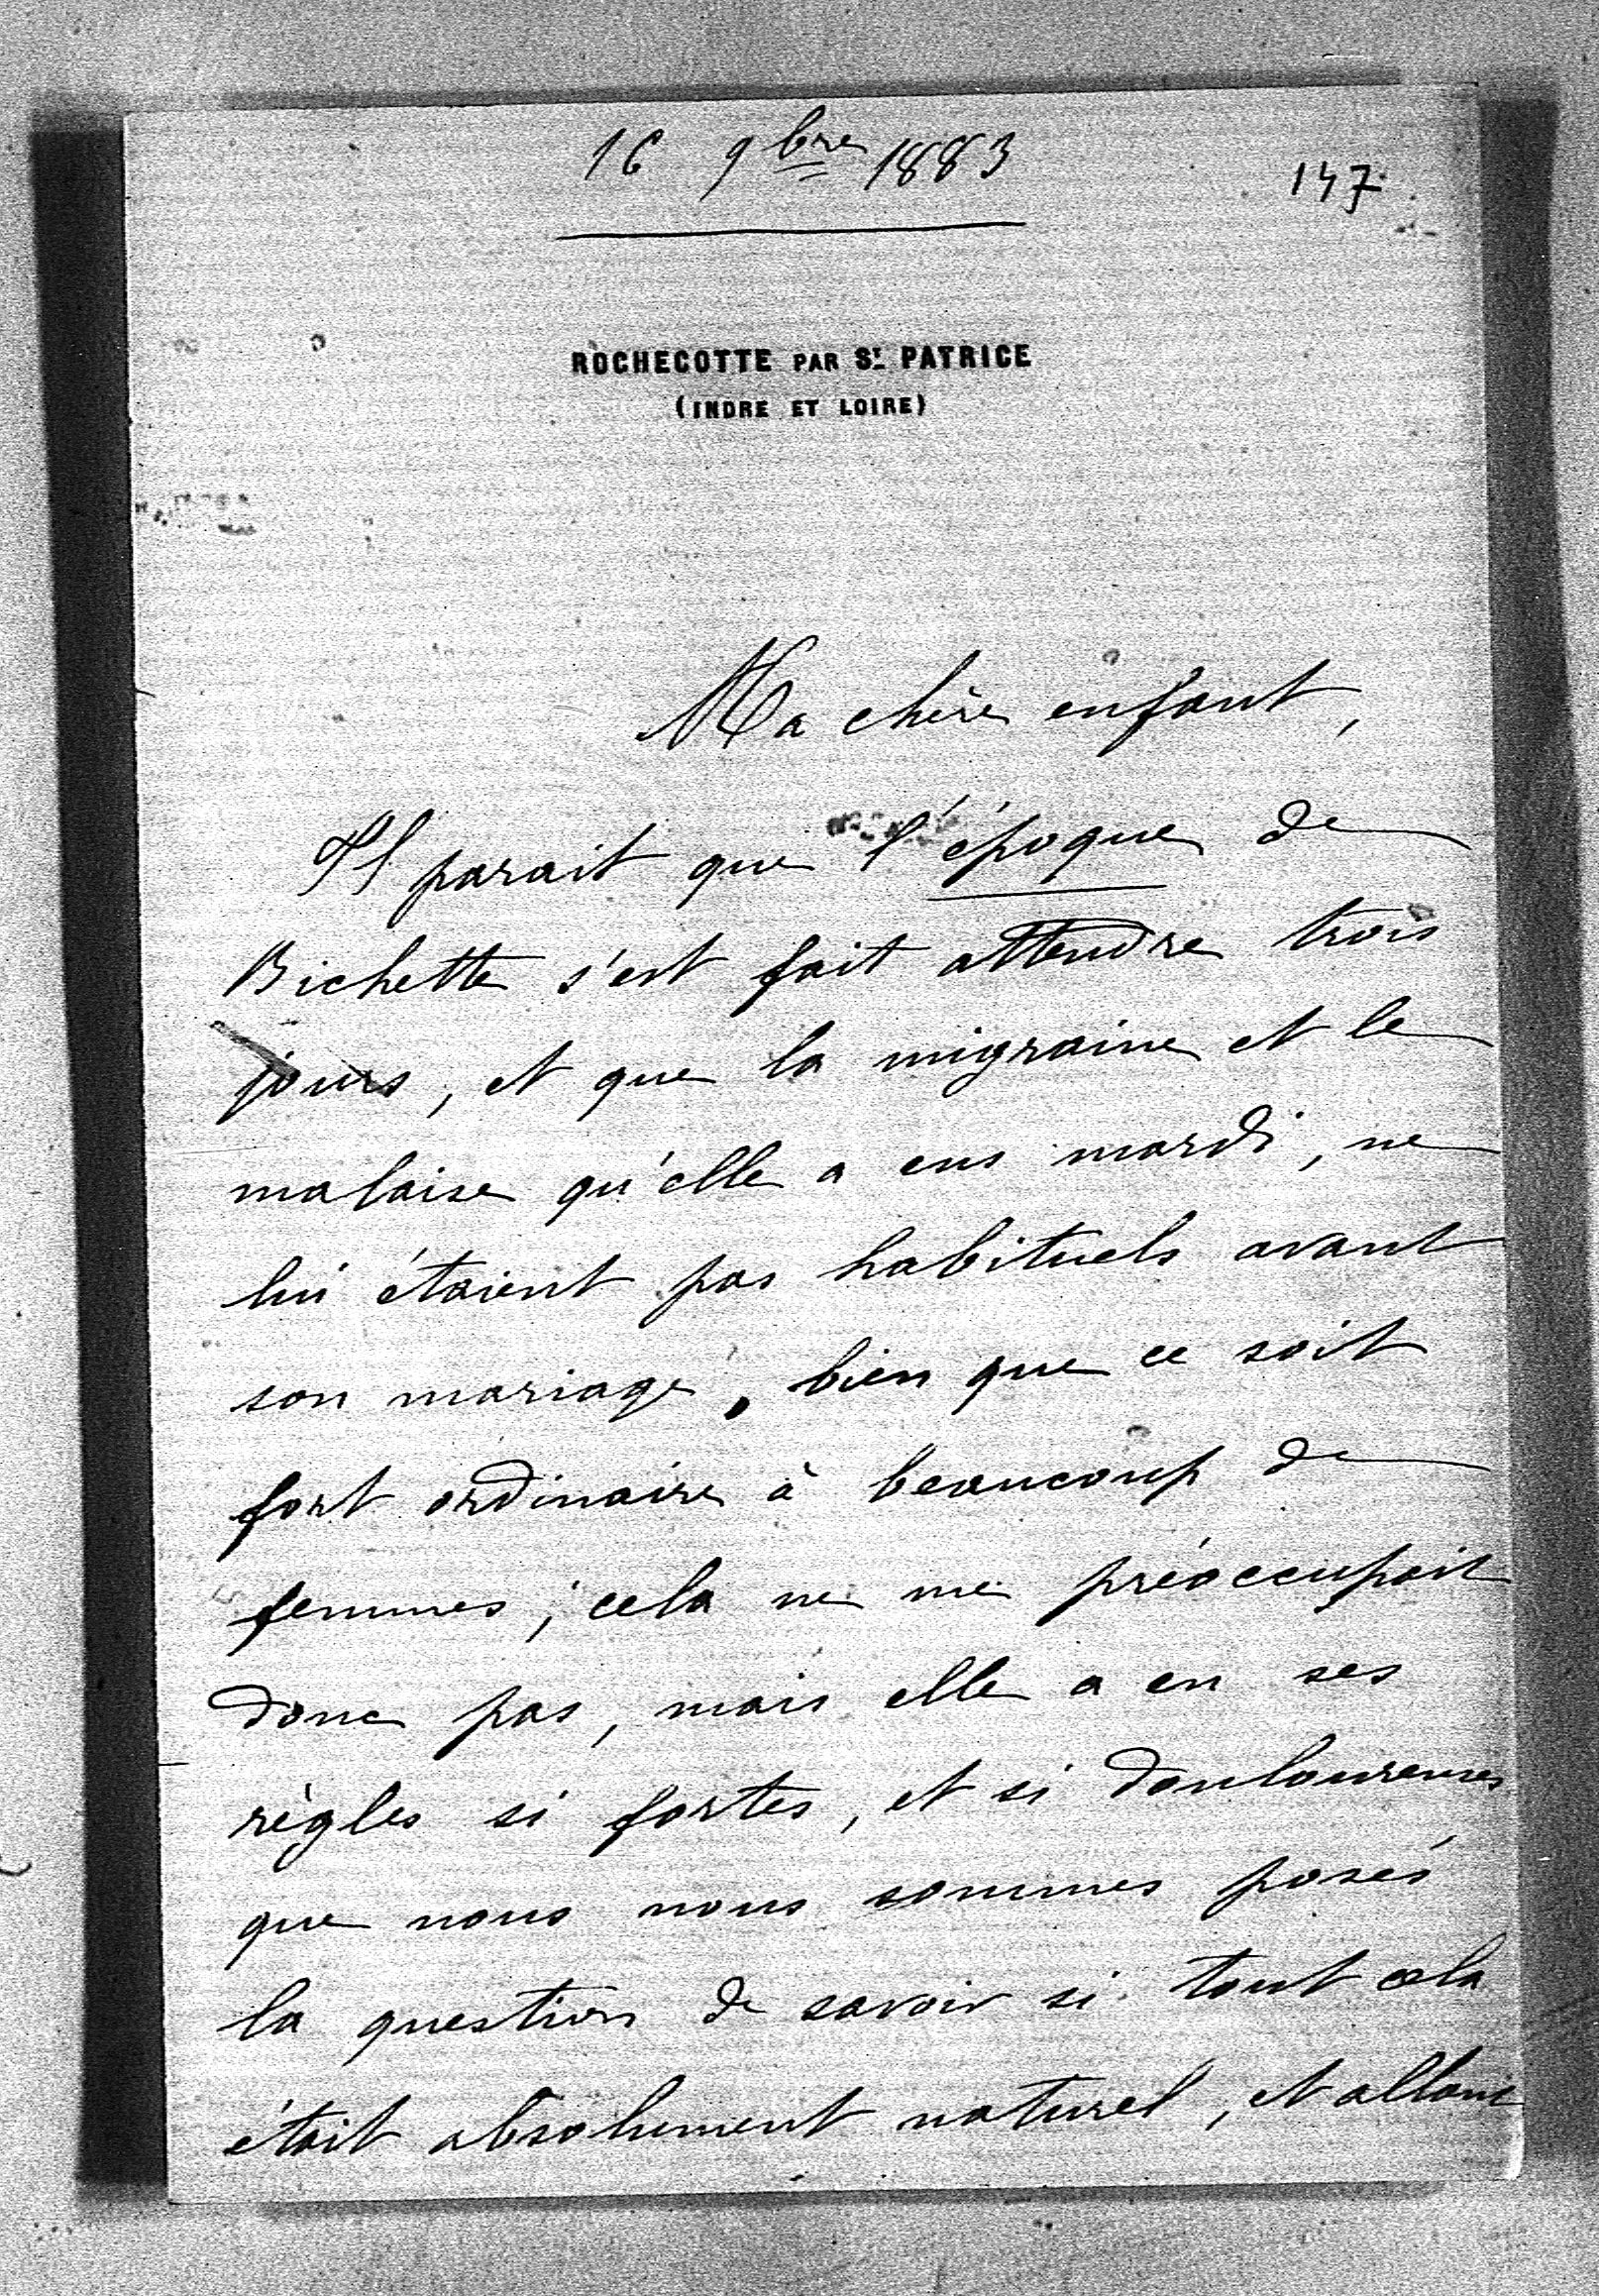 16 9bre 1883
147
ROCHECOTTE PAR ST PATRICE
(INDRE ET LOIRE)
Ma chère enfant,
Il parait que l'époque de
Bichette s'est fait attendre trois
jours, et que la migraine et le
malaise qu'elle a eus mardi, ne
lui étaient pas habituels avant
son mariage, bien que ce soit
fort ordinaire à beaucoup de
femmes; cela ne me préoccupait
donc pas, mais elle a eu ses
règles si fortes, et si douloureuses
que nous nous sommes posés
la question de savoir si tout cela
était absolument naturel, et allons